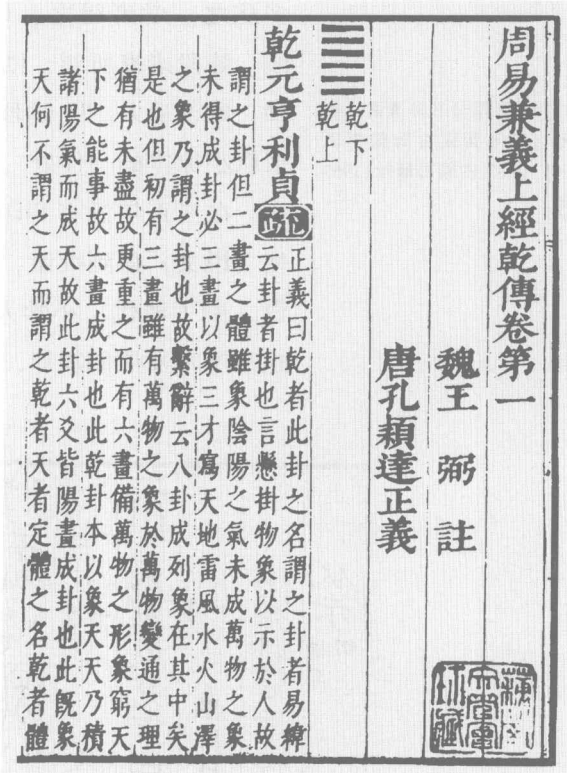 周易兼義上經乾傳卷第一
魏王 弼 註
唐孔穎達正義
䷀ 乾下
乾上
乾元亨利貞 疏 正義曰乾者此卦之名謂之卦者易緯
云卦者掛也言懸掛物象以示於人故
謂之卦但二畫之體雖象陰陽之氣未成萬物之象
未得成卦必三畫以象三才寫天地雷風水火山澤
之象乃謂之卦也故繫辭云八卦成列象在其中矣
是也但初有三畫雖有萬物之象於萬物變通之理
猶有未盡故更重之而有六畫備萬物之形象窮天
下之能事故六畫成卦也此乾卦本以象天天乃積
諸陽氣而成天故此卦六爻皆陽畫成卦也此既象
天何不謂之天而謂之乾者天者定體之名乾者體